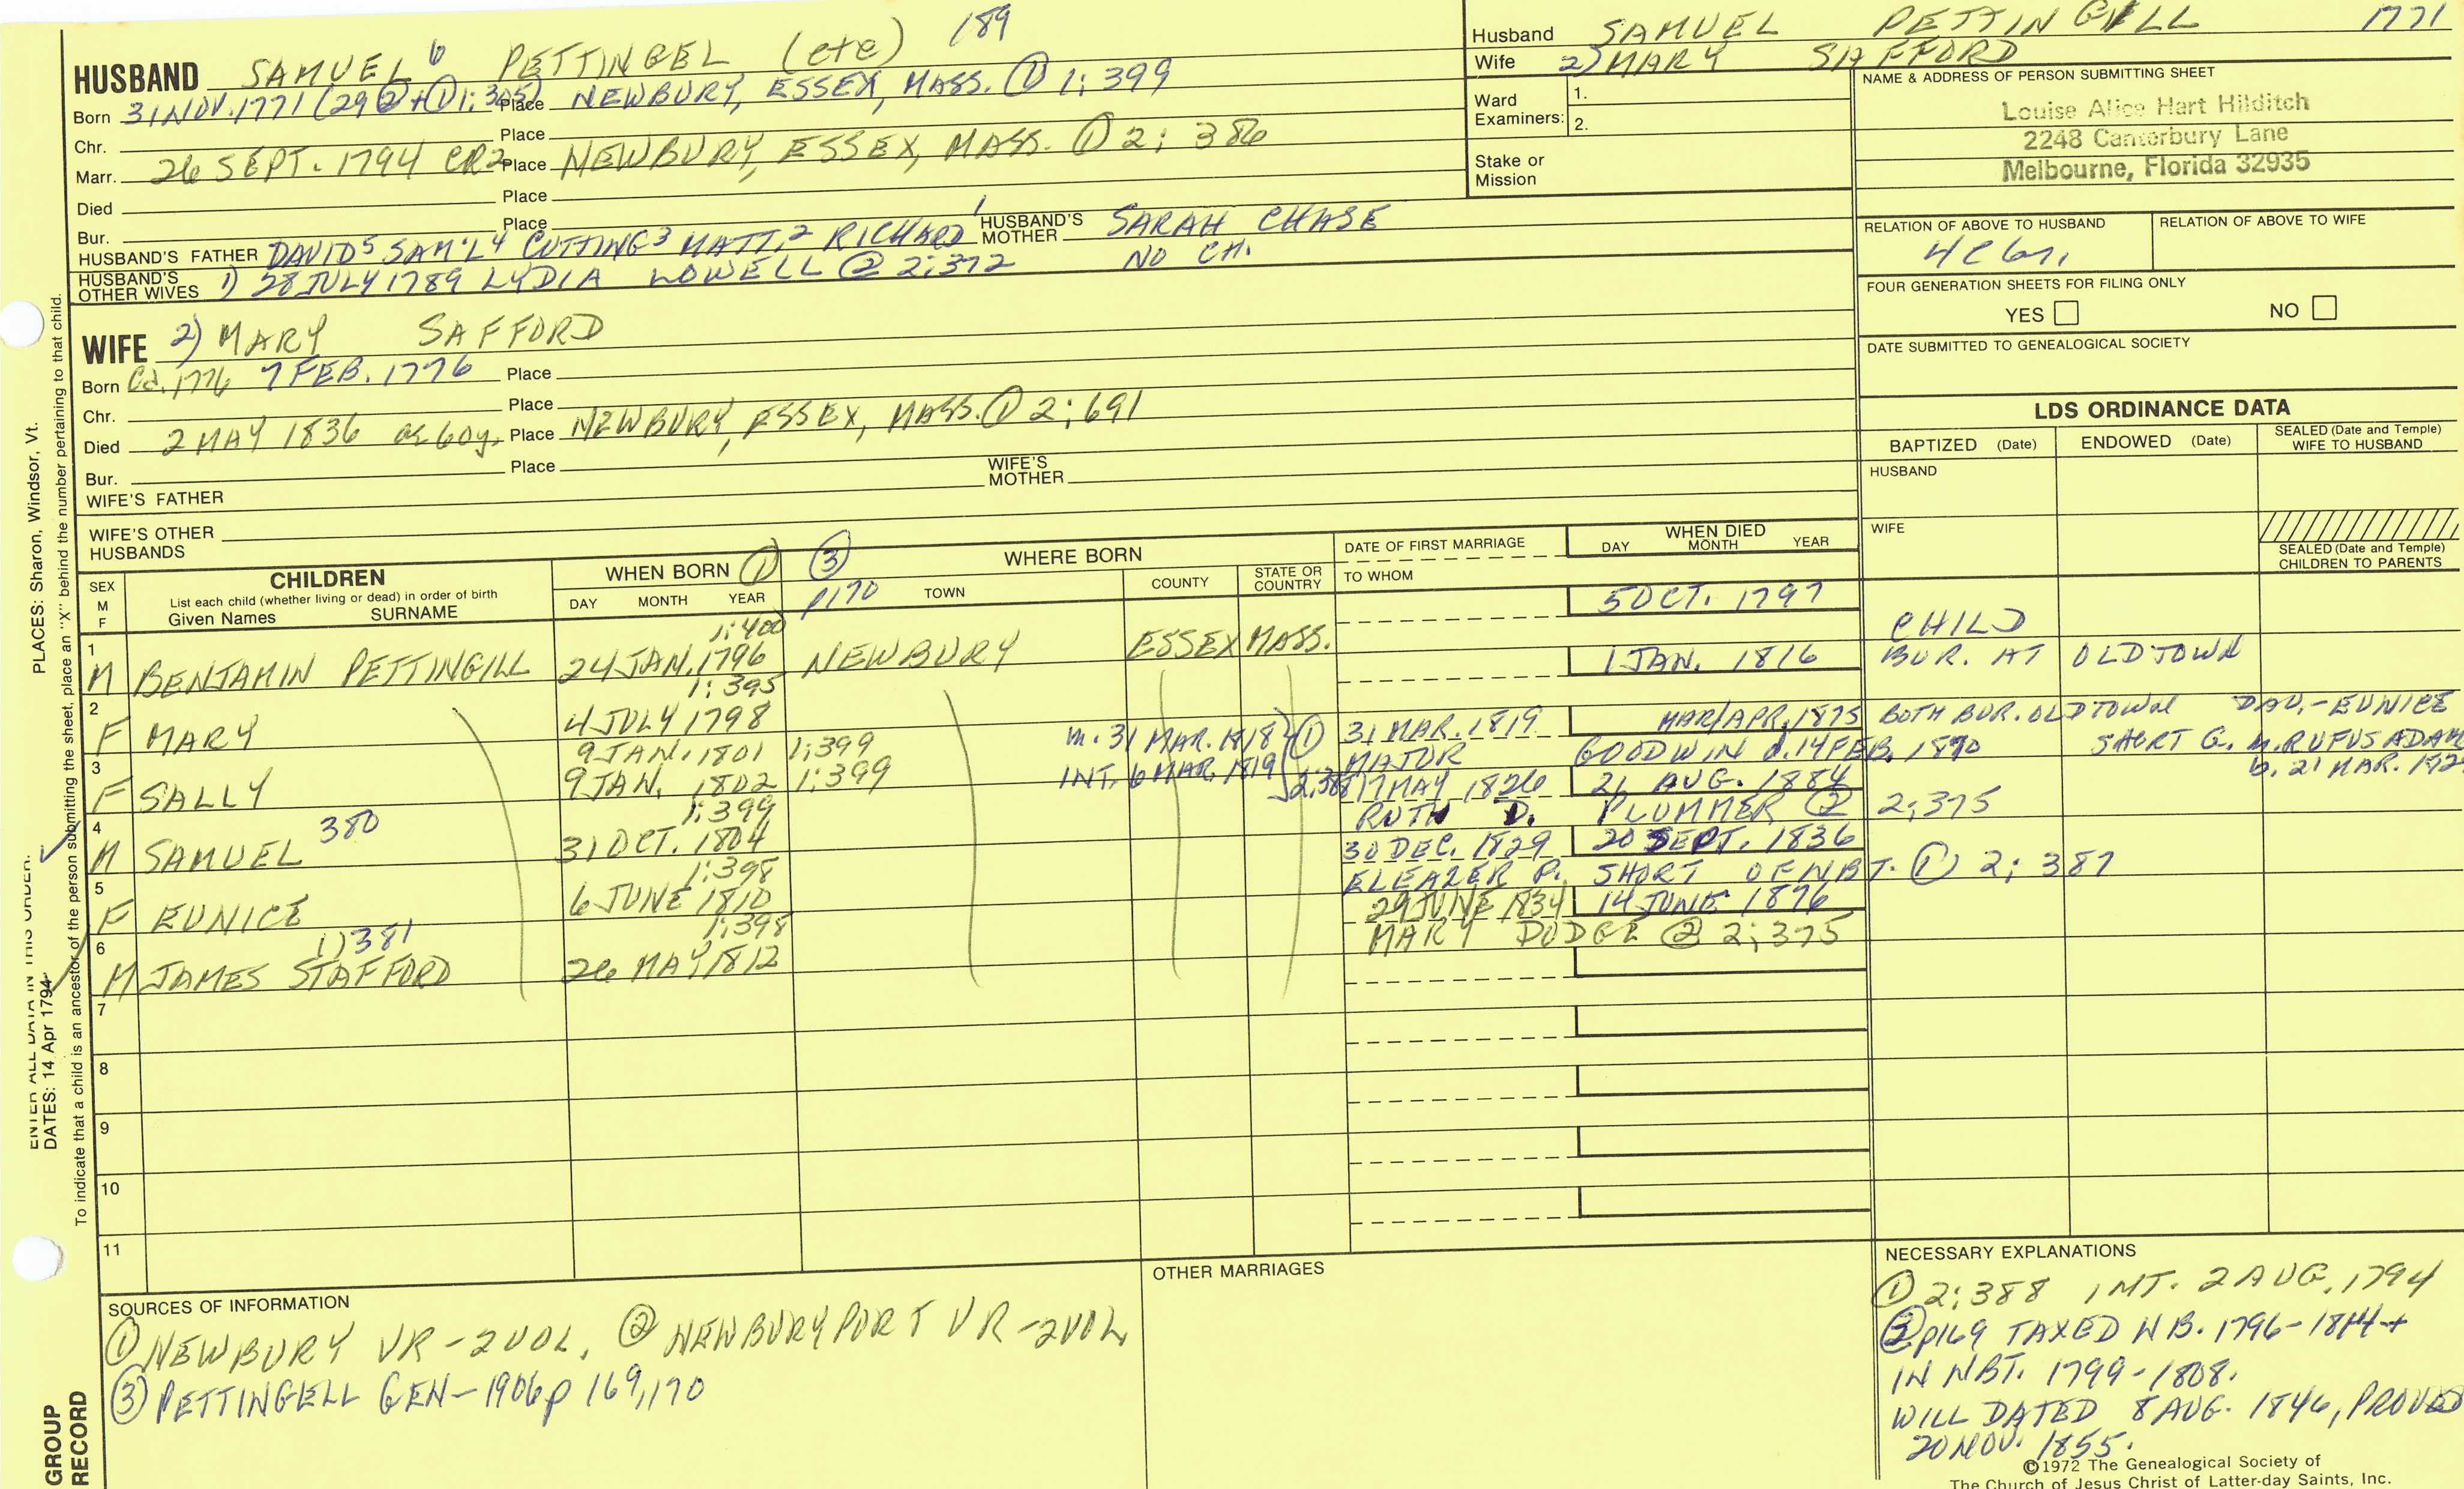 HUSBAND SAMUEL 6 PETTINGEL (etc) 189
Born 31 NOV. 1771 (29 ② + ① 1; 305) Place NEWBURY, ESSEX, MASS. ① 1; 399
Chr. Place
Marr. 26 SEPT. 1794 CR2 Place NEWBURY, ESSEX, MASS. ① 2; 386
Died Place
Bur. Place
HUSBAND'S FATHER DAVID 5 SAM'L 4 CUTTING 3 MATT. 2 RICHARD 1 HUSBAND'S MOTHER SARAH CHASE
HUSBAND'S OTHER WIVES 1) 28 JULY 1789 LYDIA LOWELL ② 2; 372 NO CH.
WIFE 2) MARY SAFFORD
Born Ca. 1776 7 FEB. 1776 Place
Chr. Place
Died 2 MAY 1836 ae 60y. Place NEWBURY, ESSEX, MASS. ① 2; 691
Bur. Place
WIFE'S FATHER WIFE'S MOTHER
WIFE'S OTHER HUSBANDS
Husband SAMUEL PETTINGILL 1771
Wife 2) MARY SAFFORD
Ward Examiners: 1.
2.
Stake or Mission
NAME & ADDRESS OF PERSON SUBMITTING SHEET
Louise Alice Hart Hilditch
2248 Canterbury Lane
Melbourne, Florida 32935
RELATION OF ABOVE TO HUSBAND RELATION OF ABOVE TO WIFE
FOUR GENERATION SHEETS FOR FILING ONLY
YES NO
DATE SUBMITTED TO GENEALOGICAL SOCIETY
LDS ORDINANCE DATA
BAPTIZED (Date) ENDOWED (Date) SEALED (Date and Temple) WIFE TO HUSBAND
HUSBAND
WIFE
SEALED (Date and Temple) CHILDREN TO PARENTS
SEX M F
CHILDREN
List each child (whether living or dead) in order of birth
Given Names SURNAME
WHEN BORN ①
DAY MONTH YEAR
③ p170
WHERE BORN
TOWN COUNTY STATE OR COUNTRY
DATE OF FIRST MARRIAGE
TO WHOM
WHEN DIED
DAY MONTH YEAR
1:400 5 OCT. 1797 CHILD
1 M BENJAMIN PETTINGILL 24 JAN. 1796 NEWBURY ESSEX MASS. 1 JAN. 1816 BUR. AT OLDTOWN
1:395
2 F MARY 4 JULY 1798
9 JAN. 1801 1:399 m. 31 MAR. 1818 ① 31 MAR. 1819 MAR/APR. 1875 BOTH BUR. OLDTOWN DAU.-EUNICE
3 F SALLY 9 JAN. 1802 1:399 INT. 6 MAR. 1819 2;388 MAJOR GOODWIN d. 14 FEB. 1870 SHORT G. m. RUFUS ADAM
b. 21 MAR. 182
1:399 17 MAY 1826 21 AUG. 1884
4 M SAMUEL 380 31 OCT. 1804 RUTH D. PLUMMER ② 2;375
1:398 30 DEC. 1829 20 SEPT. 1836
5 F EUNICE 6 JUNE 1810 ELEAZER P. SHORT OF NBT. ① 2; 387
1:398 29 JUNE 1834 14 JUNE 1876
6 M JAMES STAFFORD 1) 381 26 MAY 1812 MARY DODGE ② 2;375
7
8
9
10
11
SOURCES OF INFORMATION
① NEWBURY VR-2VOL. ② NEWBURYPORT VR-2VOL
③ PETTINGELL GEN-1906 p 169,170
OTHER MARRIAGES
NECESSARY EXPLANATIONS
① 2;388 INT. 2 AUG. 1794
③ p169 TAXED NB. 1796-1814+
IN NBT. 1799-1808.
WILL DATED 8 AUG. 1846, PROVED
20 NOV. 1855.
©1972 The Genealogical Society of
The Church of Jesus Christ of Latter-day Saints, Inc.
PLACES: Sharon, Windsor, Vt.
ENTER ALL DATA IN THIS ORDER:
DATES: 14 Apr 1794
To indicate that a child is an ancestor of the person submitting the sheet, place an "X" behind the number pertaining to that child.
GROUP
RECORD